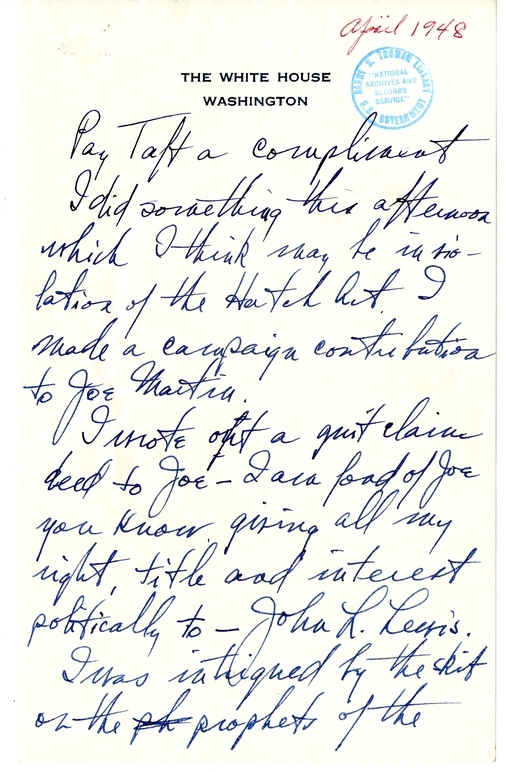 april 1948
HARRY S. TRUMAN LIBRARY
"NATIONAL
ARCHIVES AND
RECORDS
SERVICE"
U.S. GOVERNMENT
THE WHITE HOUSE
WASHINGTON
Pay Taft a compliment
I did something this afternoon
which I think may be in vio-
lation of the Hatch Act. I
made a campaign contribution
to Joe Martin.
I wrote out a quit claim
deed to Joe – I am fond of Joe
you know, giving all my
right, title and interest
politically to – John L. Lewis.
I was intrigued by the skit
on the ph prophets of the